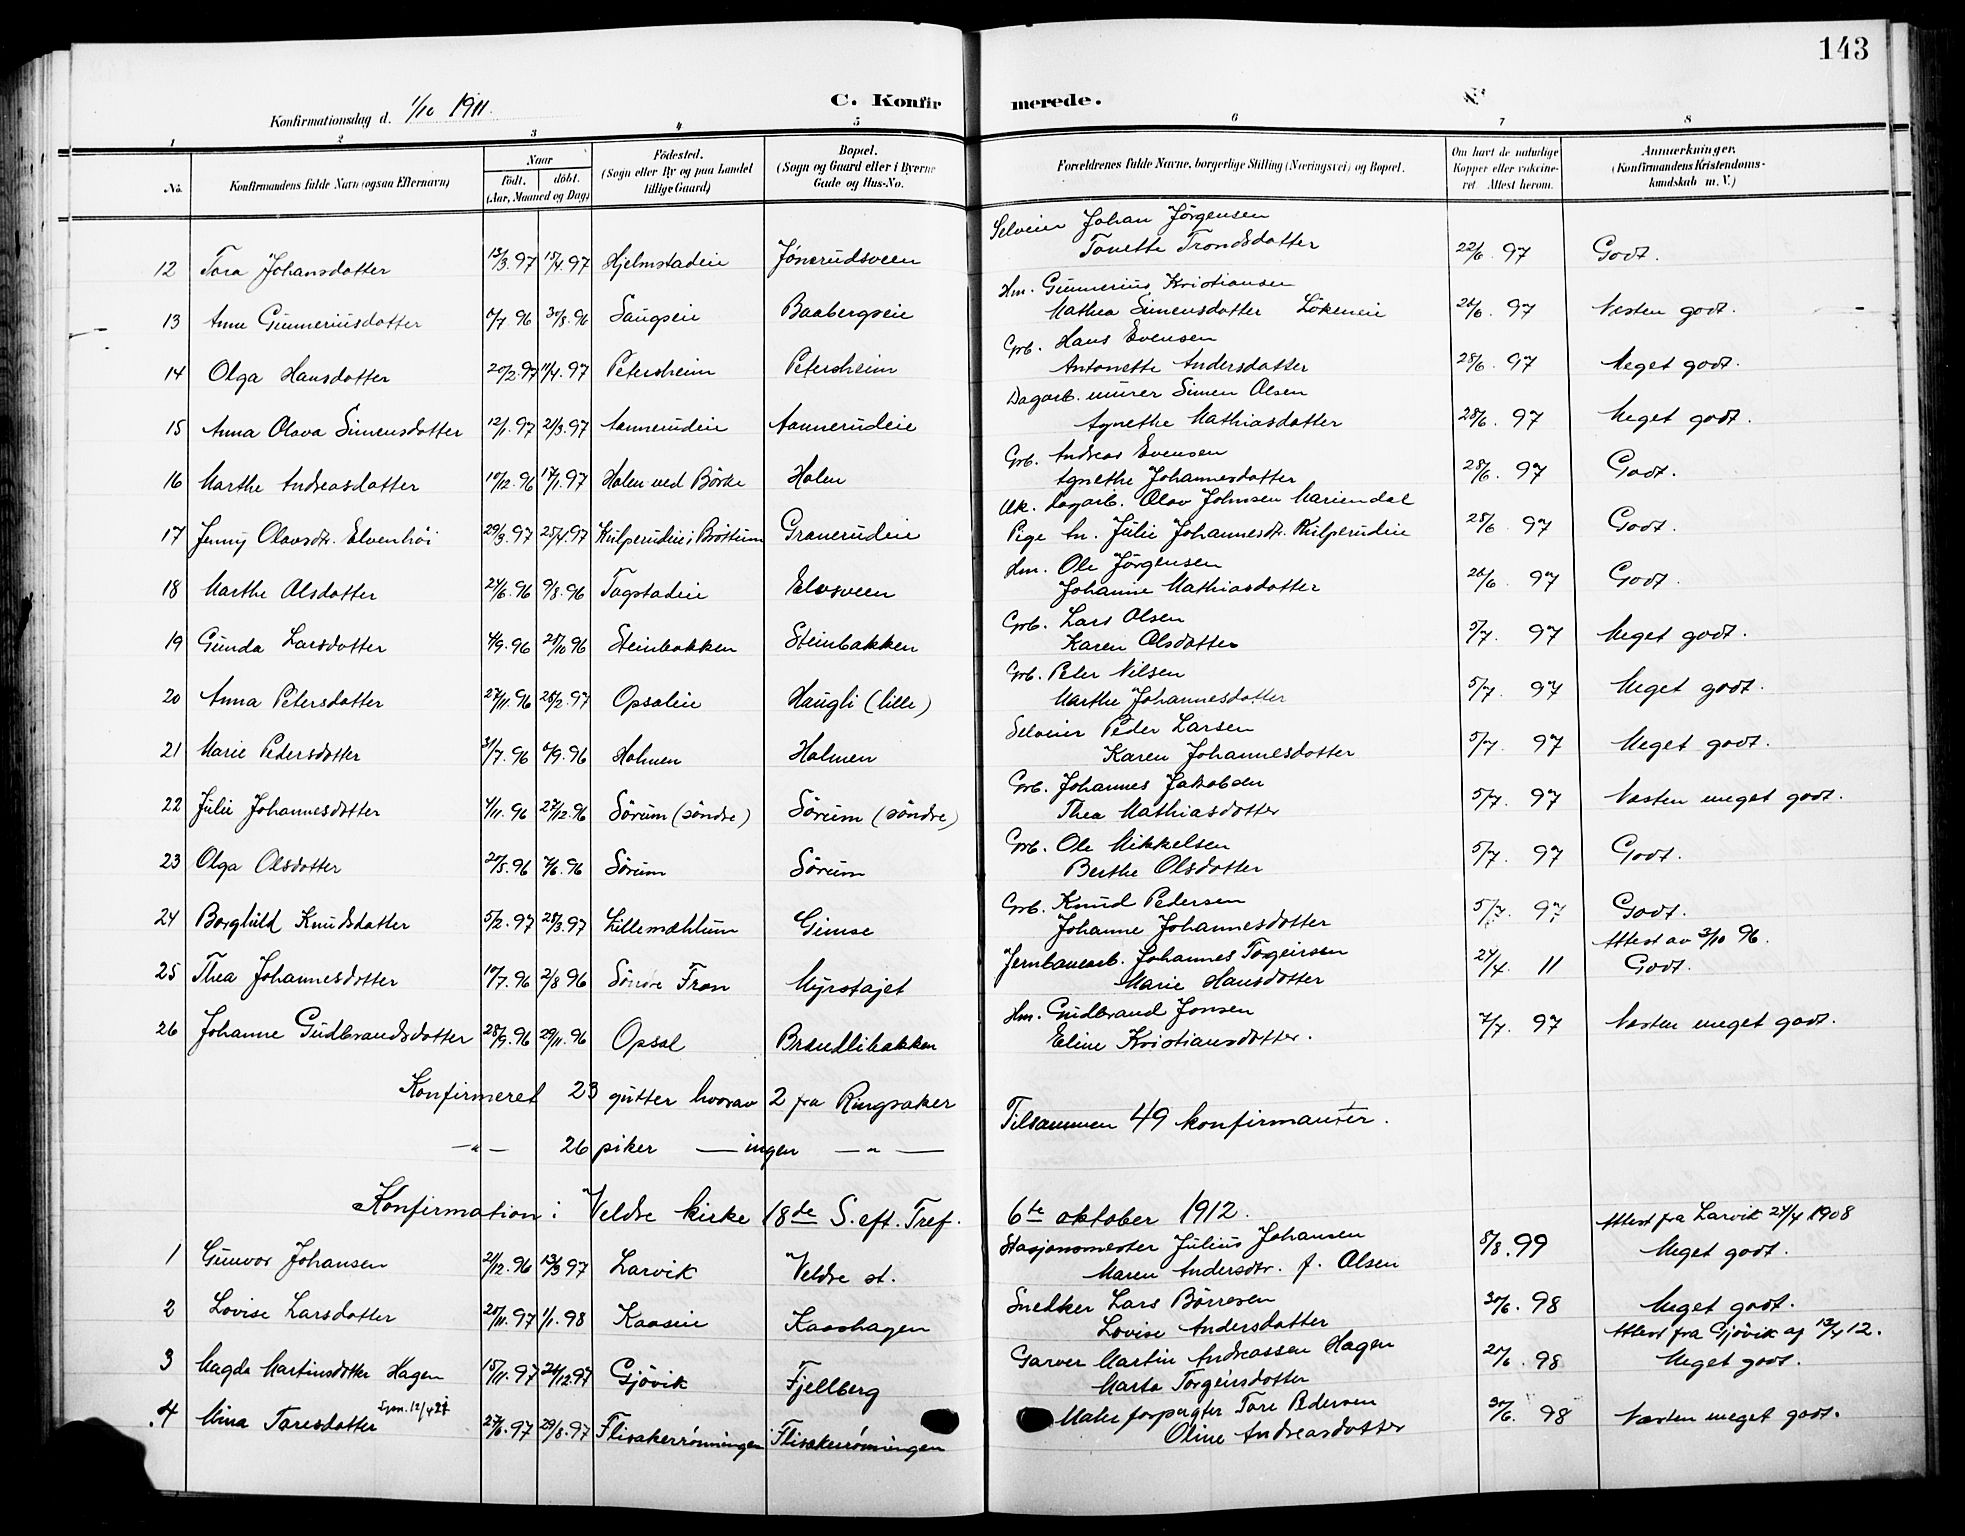 143
Konfirmationsdag d. 1/10 1911.
C. Konfirmerede.
1 2 3 4 5 6 7 8
No. Konfirmandens fulde Navn (ogsaa Efternavn) Naar født, døbt. (Aar, Maaned og Dag) Fødested. (Sogn eller By og paa Landet tillige Gaard) Bopæl. (Sogn og Gaard eller i Byerne Gade og Hus-No. Forældrenes fulde Navne, borgerlige Stilling (Næringsvei) og Bopæl. Om havt de naturlige Kopper eller vakcineret. Attest herom. Anmærkninger. (Konfirmandens Kristendomskundskab m. V.)
Selveier Johan Jörgensen
12 Tora Johansdotter 13/3.97 15/4.97 Hjelmstadeie Jönerudsveen Tonette Trondsdotter 22/6.97 Godt.
Hm. Gunnerius Kristiansen
13 Anne Gunneriusdotter 6/7.96 30/8.96 Saugseie Baabergseie Mathea Simensdotter Lökeneie 26/6.97 Næsten godt.
Grb. Hans Evensen
14 Olga Hansdotter 20/2.97 11/4.97 Petersheim Petersheim Antonette Andersdotter 28/6.97 Meget godt.
Dagarb. murer Simen Olsen
15 Anna Olava Simensdotter 12/1.97 21/3.97 Aannerudeie Aannerudeie Agnethe Mathiasdotter 28/6.97 Meget godt.
Grb. Andreas Evensen
16 Marthe Andreasdotter 10/12.96 17/1.97 Holen ved Börke Holen Agnethe Johannesdotter 28/6.97 Godt.
Uk. Dagarb. Olav Johnsen Mariendal
17 Jenny Olavsdr. Elvenhöi 29/3.97 25/4.97 Kulperudeie i Bröttum Granerudeie Pige An. Julie Johannesdr. Kulperudeie 28/6.97 Godt.
Hm. Ole Jörgensen
18 Marthe Olsdotter 24/6.96 9/8.96 Tagstadeie Elvsveen Johanne Mathiasdotter 26/6.97 Godt.
Grb. Lars Olsen
19 Gunda Larsdotter 4/9.96 25/10 96 Steinbakken Steinbakken Karen Olsdotter 5/7.97 Meget godt.
Grb. Peter Nilsen
20 Anna Petersdotter 27/11.96 28/2.97 Opsaleie Haugli (lille) Marthe Johannesdotter 5/7.97 Meget godt.
Selveier Peder Larsen
21 Marie Pedersdotter 31/7.96 6/9.96 Holmen Holmen Karen Johannesdotter 5/7.97 Meget godt.
Grb. Johannes Jakobsen
22 Julie Johannesdotter 4/11.96 27/12.96 Sörum (söndre) Sörum (söndre) Thea Mathiasdotter 5/7.97 Næsten meget godt.
Grb. Ole Mikkelsen
23 Olga Olsdotter 27/5.96 7/6.96 Sörum Sörum Berthe Olsdotter 5/7.97 Godt.
Grb. Knud Pedersen
24 Borghild Knudsdotter 5/2.97 28/3.97 Lillemæhlum Gimse Johanne Johannesdotter 5/7.97 Godt.
Jernbanearb. Johannes Torgeirsen Attest av 3/10 96.
25 Thea Johannesdotter 17/7.96 2/8 96 Söndre Fron Myrstajet Marie Hansdotter 24/4.11 Godt.
Hm. Gudbrand Jonsen
26 Johanne Gudbrandsdotter 28/9.96 29/11.96 Opsal Brændlibakken Eline Kristiansdotter. 7/7.97 Næsten meget godt.
Konfirmeret 23 gutter hvorav 2 fra Ringsaker
Tilsammen 49 konfirmanter.
—"— 26 piker — ingen —"—
Konfirmation i Veldre kirke 18de S. eft. Tref. 6te oktober 1912.
Stasjonsmester Julius Johansen Attest fra Larvik 24/4 1908
1 Gunvor Johansen 21/12.96 13/3 97 Larvik Veldre st. Maren Andersdtr. f. Olsen 8/8.99 Meget godt.
Snedker Lars Börresen
2 Lovise Larsdotter 20/11.97 1/1.98 Kaaseie Kaashagen Lovise Andersdotter 30/6.98 Meget godt.
Garver Martin Andreassen Hagen Attest fra Gjövik af 13/4 12.
3 Magda Martinsdotter Hagen 15/11.97 26/12.97 Gjövik Fjellberg Marta Torgeirsdotter 20/6.98 Meget godt.
Maler forpagter Tore Pedersen
4 Mina Toresdotter 27/6.97 29/8.97 Flisakerrönningen Flisakerrönningen Oline Andreasdotter 30/6.98 Næsten meget godt.